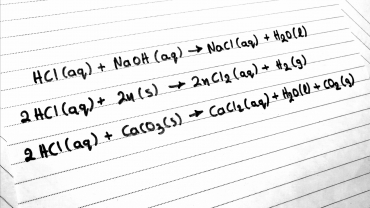 HCl(aq) + NaOH(aq) → NaCl(aq) + H₂O(l)
2HCl(aq) + Zn(s) → ZnCl₂(aq) + H₂(g)
2HCl(aq) + CaCO₃(s) → CaCl₂(aq) + H₂O(l) + CO₂(g)